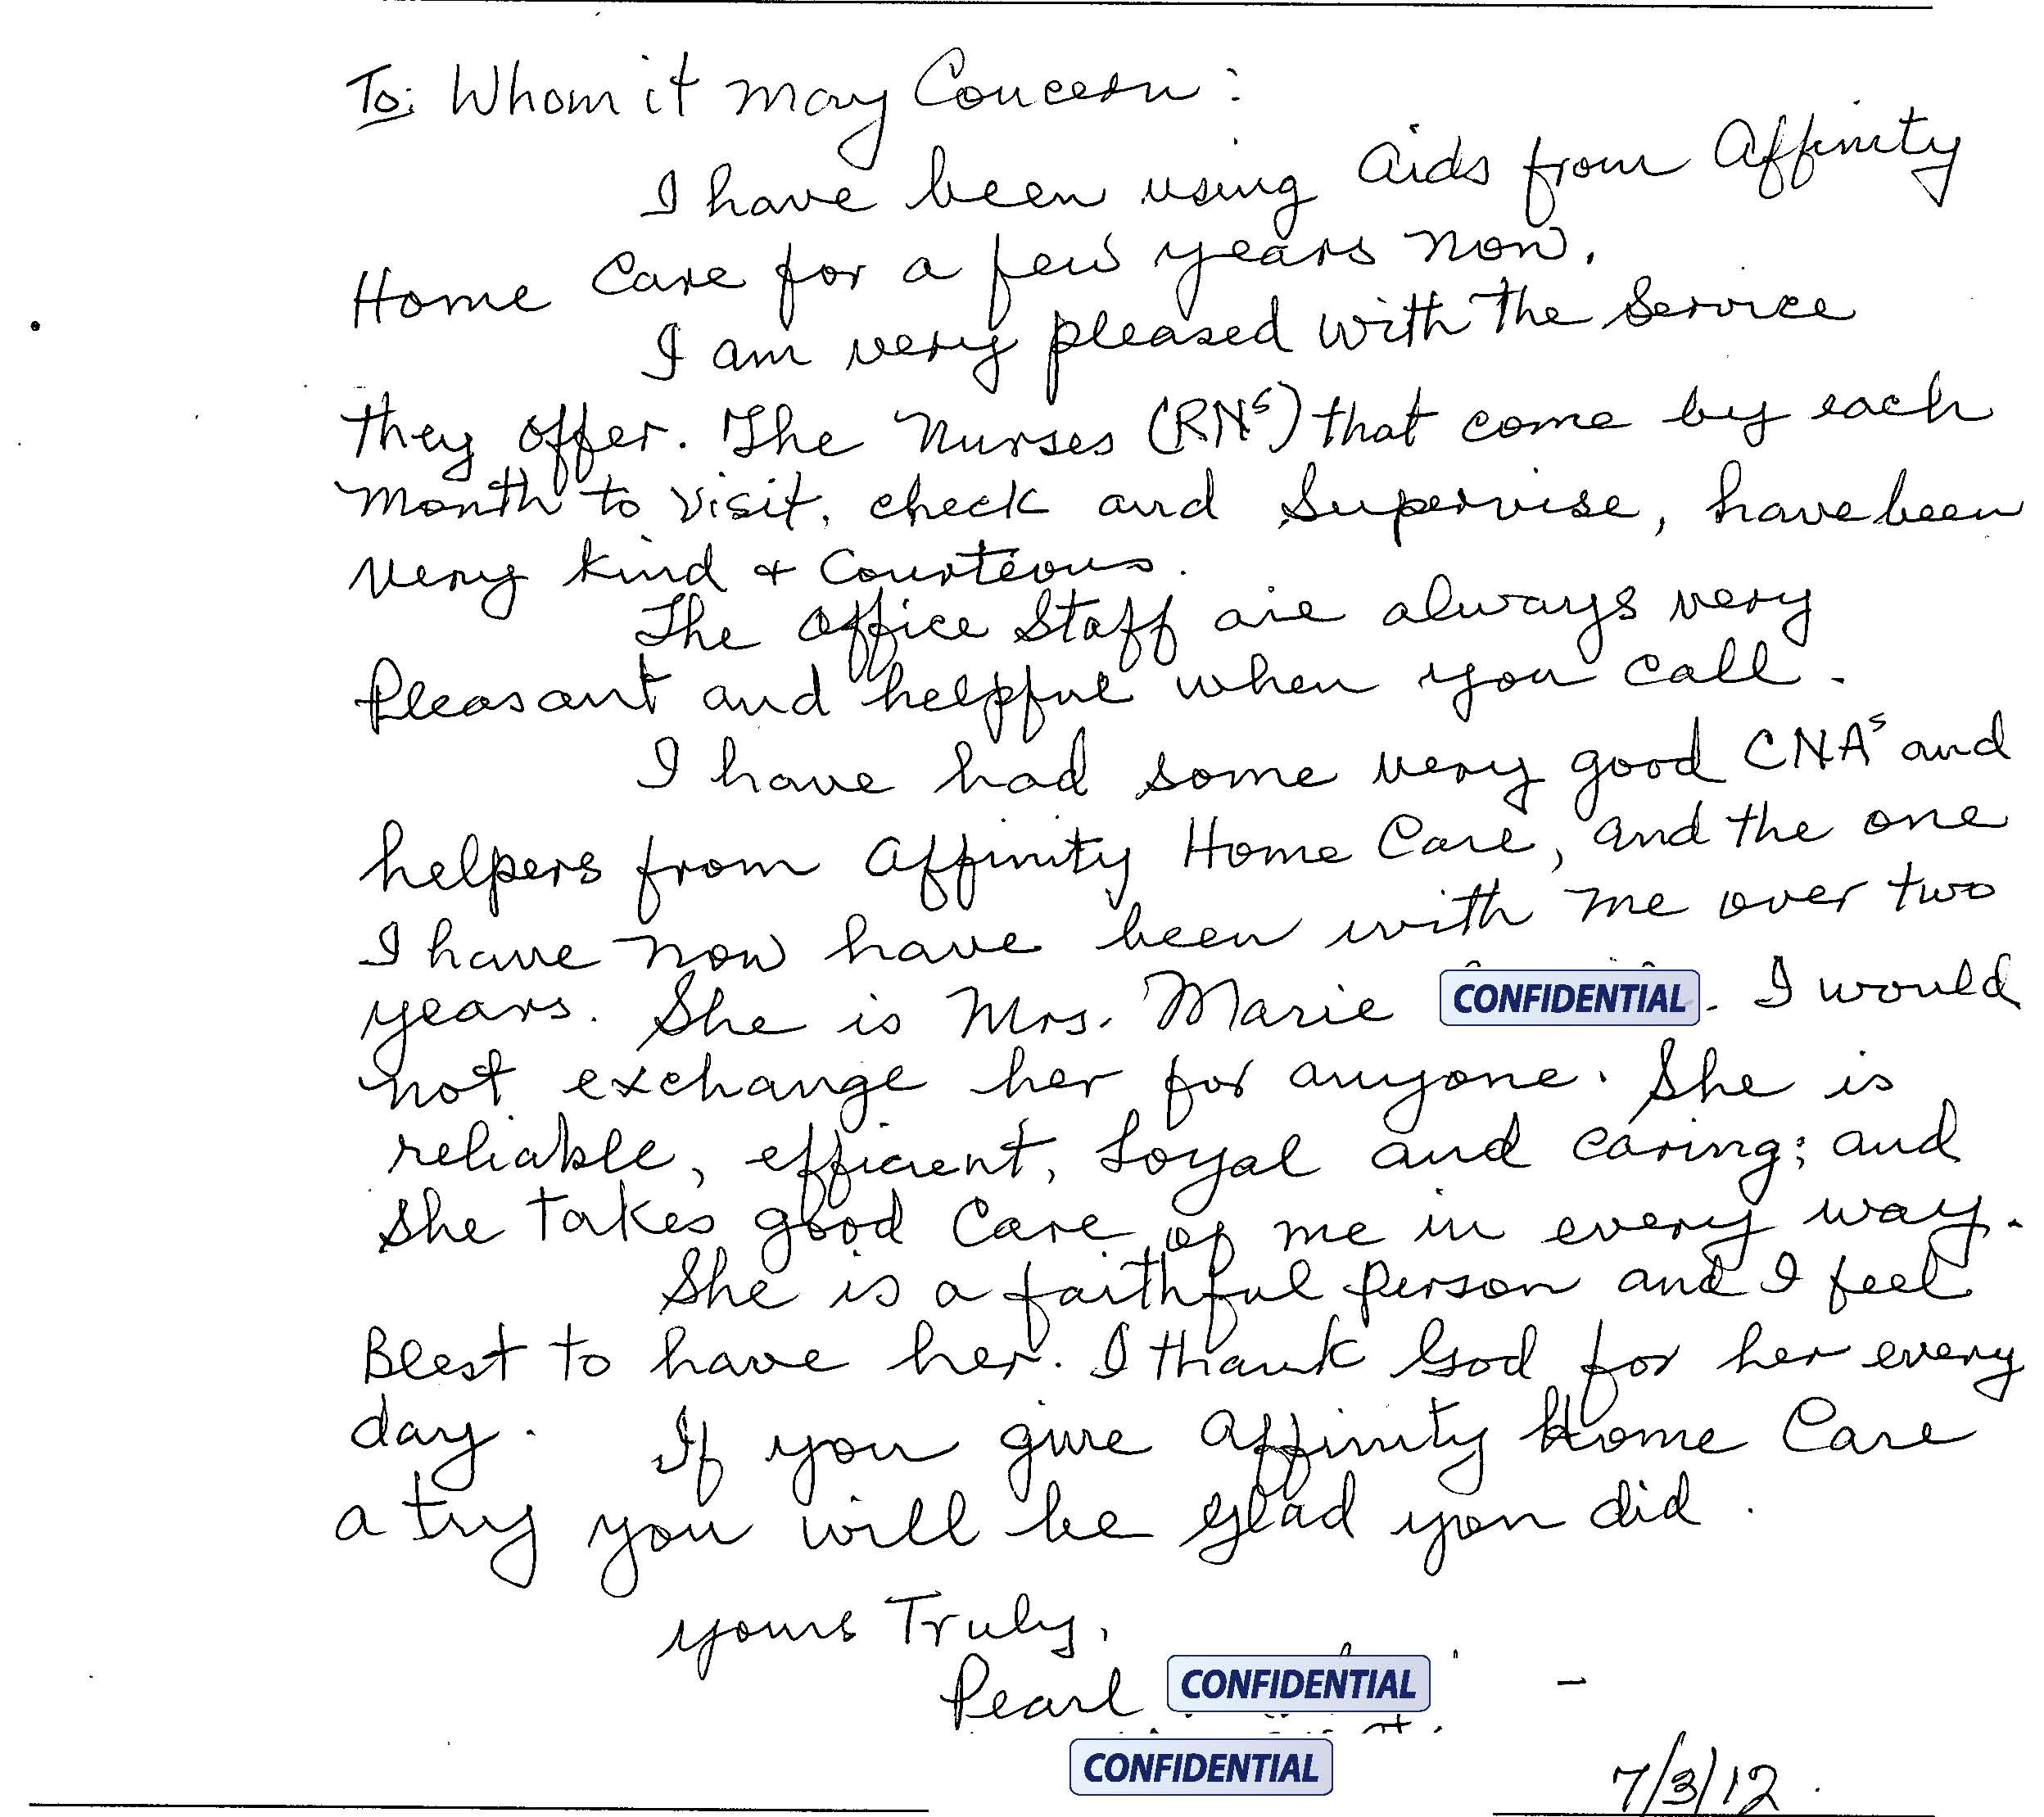 To: Whom it may Concern:
I have been using aids from Affinity
Home Care for a few years now.
I am very pleased with the service
they offer. The Nurses (RNs) that come by each
month to visit, check and supervise, have been
very kind & Courteous.
The office staff are always very
pleasant and helpful when you call.
I have had some very good CNAs and
helpers from Affinity Home Care, and the one
I have now have been with me over two
years. She is Mrs. Marie CONFIDENTIAL. I would
not exchange her for anyone. She is
reliable, efficient, loyal and caring; and
she takes good care of me in every way.
She is a faithful person and I feel
Blest to have her. I thank God for her every
day. If you give Affinity Home Care
a try you will be glad you did.
Yours Truly,
Pearl CONFIDENTIAL
CONFIDENTIAL
7/3/12